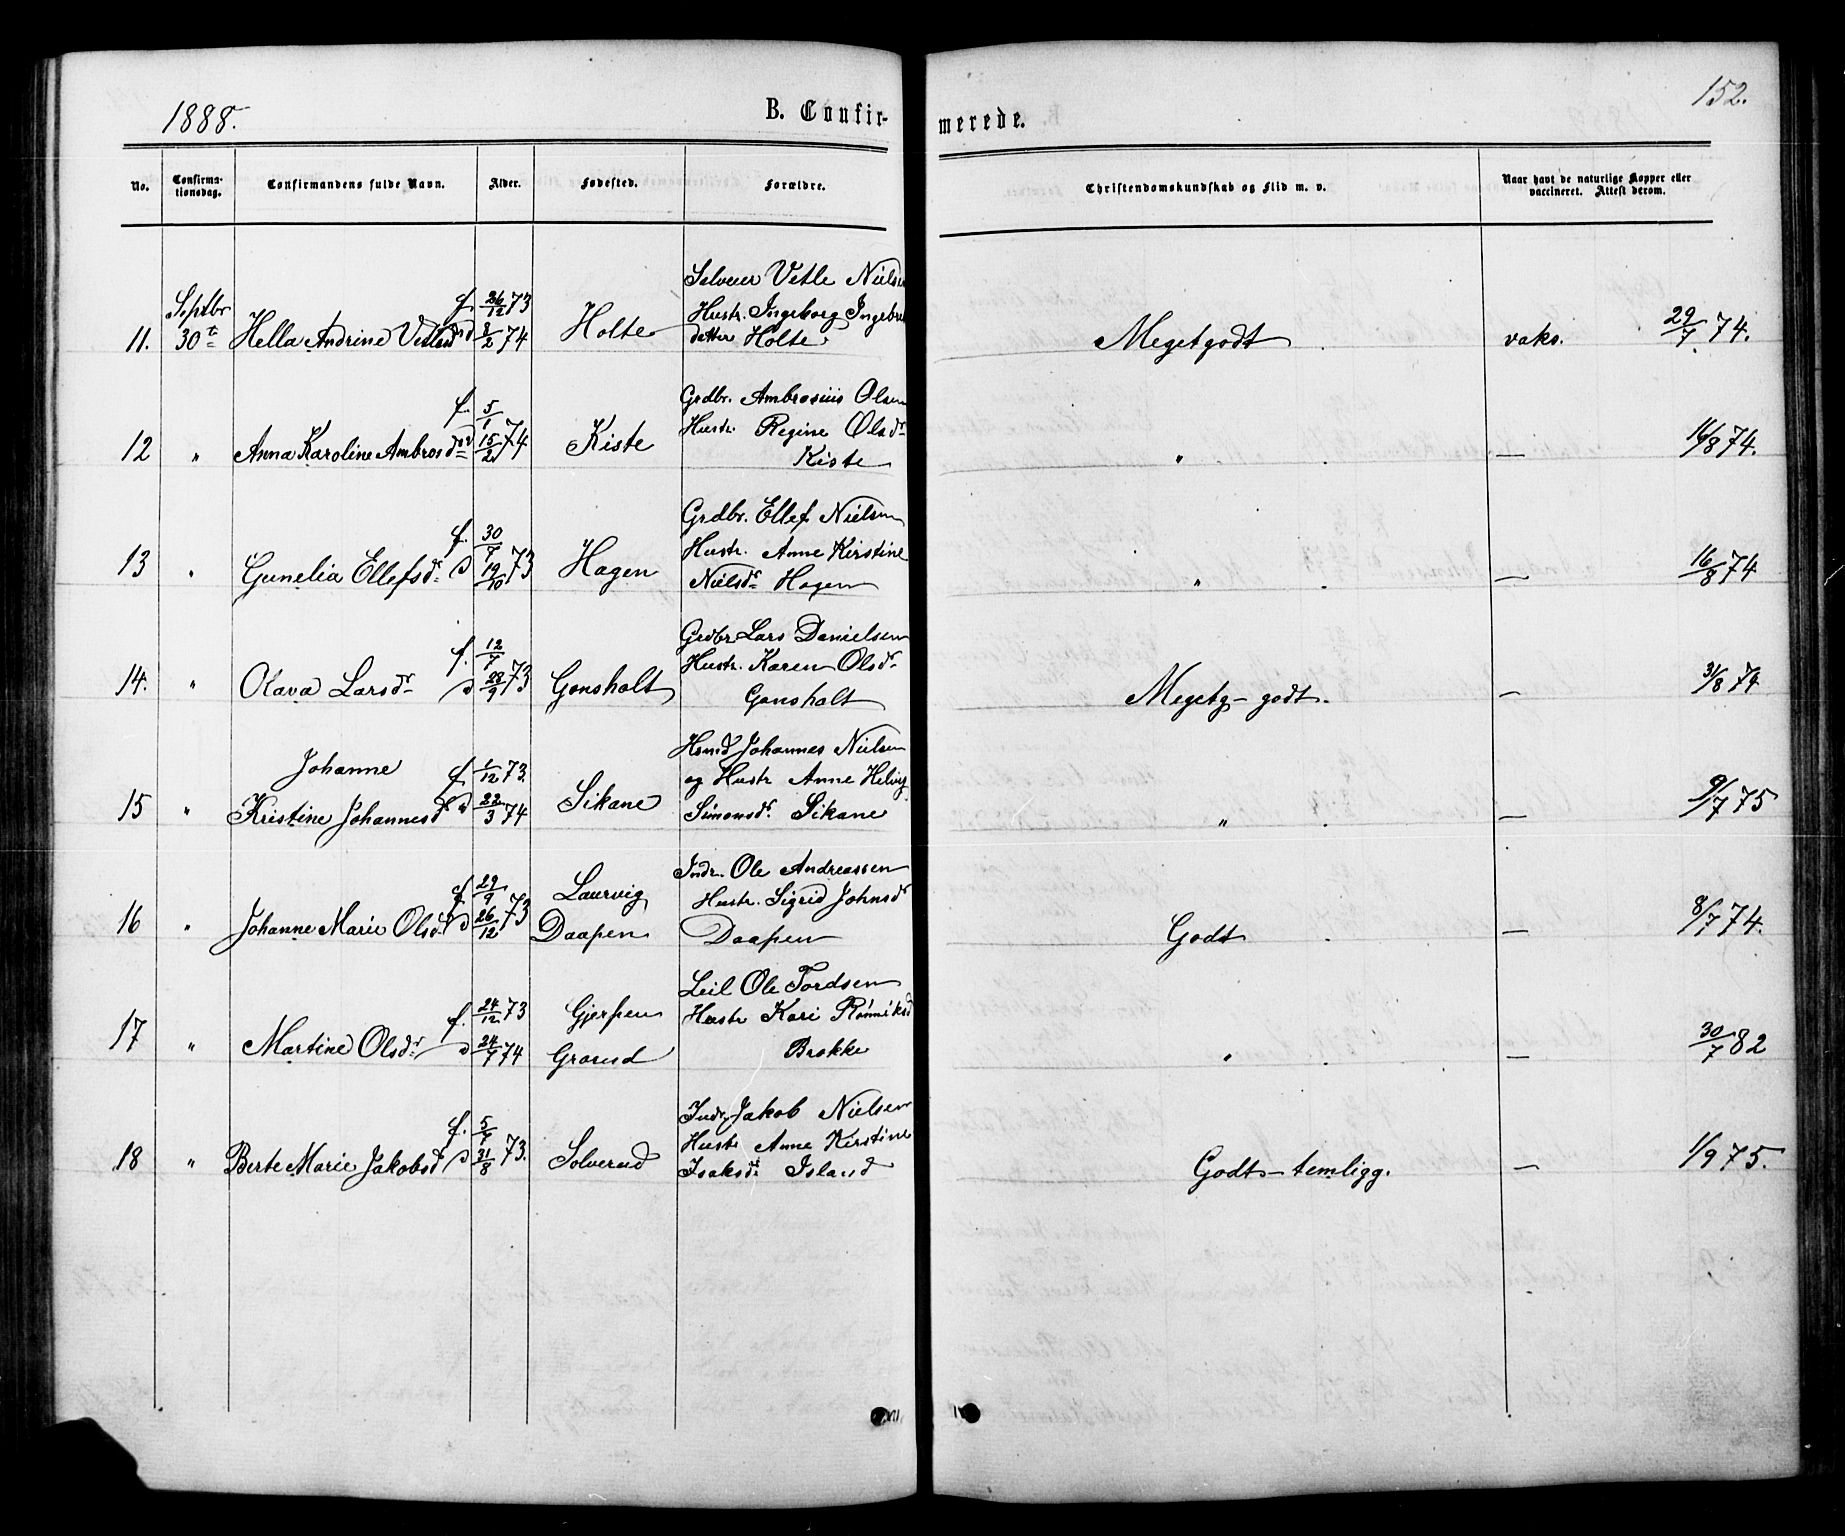 1888.
B. Confir-
merede.
152.
No.
Confirma-
tionsdag.
Confirmandens fulde Navn.
Alder.
Fødested.
Forældre.
Christendomskundskab og Flid m. v.
Naar havt de naturlige Kopper eller
vaccineret. Attest derom.
11. Septbr 30te Hella Andrine Vetlesd f. 26/12 73 d 8/2 74 Holte
Selveier Vetle Nielsen
Hustr. Ingeborg Ingebr
datter Holte
Megetgodt vaks. 29/7 74.
12 " Anna Karoline Ambrosdr f. 5/1 d 15/2 74 Kiste
Grdbr. Ambrosius Olsen
Hustr. Regine Olsdr
Kiste
" — 16/8 74.
13 " Gunelia Ellefsdr f. 30/7 d 19/10 73 Hagen
Grdbr. Ellef Nielsen
Hustr. Anne Kirstine
Nielsdr Hagen
" — 16/8 74
14. " Olava Larsdr f. 12/7 d 28/9 73 Gonsholt
Grdbr Lars Danielsen
Hustr. Karen Olsdr
Gonsholt
Megetg - godt. — 31/8 74
15 " Johanne
Kristine Johannesdr f 1/12 73. d 22/3 74 Sikane
Hsmd Johannes Nielsen
og Hustr Anne Helvig
Simonsdr. Sikane
" — 9/7 75
16 " Johanne Marie Olsdr f 29/9 d 26/12 73 Laurvig
Daapen
Indr. Ole Andreassen
Hustr. Sigrid Johnsdr
Daapen
Godt — 8/7 74.
17 " Martine Olsdr f. 24/12 73 d 24/7 74 Gjerpen
Grorud
Leil Ole Tordsen
Hustr Kari Rønniksd
Brokke
" — 30/7 82
18 " Berte Marie Jakobsd f. 5/7 d 31/8 73. Solverud
Indr Jakob Nielsen
Hustr Anne Kirstine
Isaksdr Island
Godt - temligg. — 1/9 75.